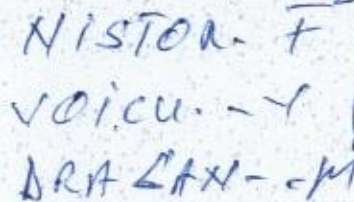 NISTOR. F
VOICU. - Y
DRAGAN -